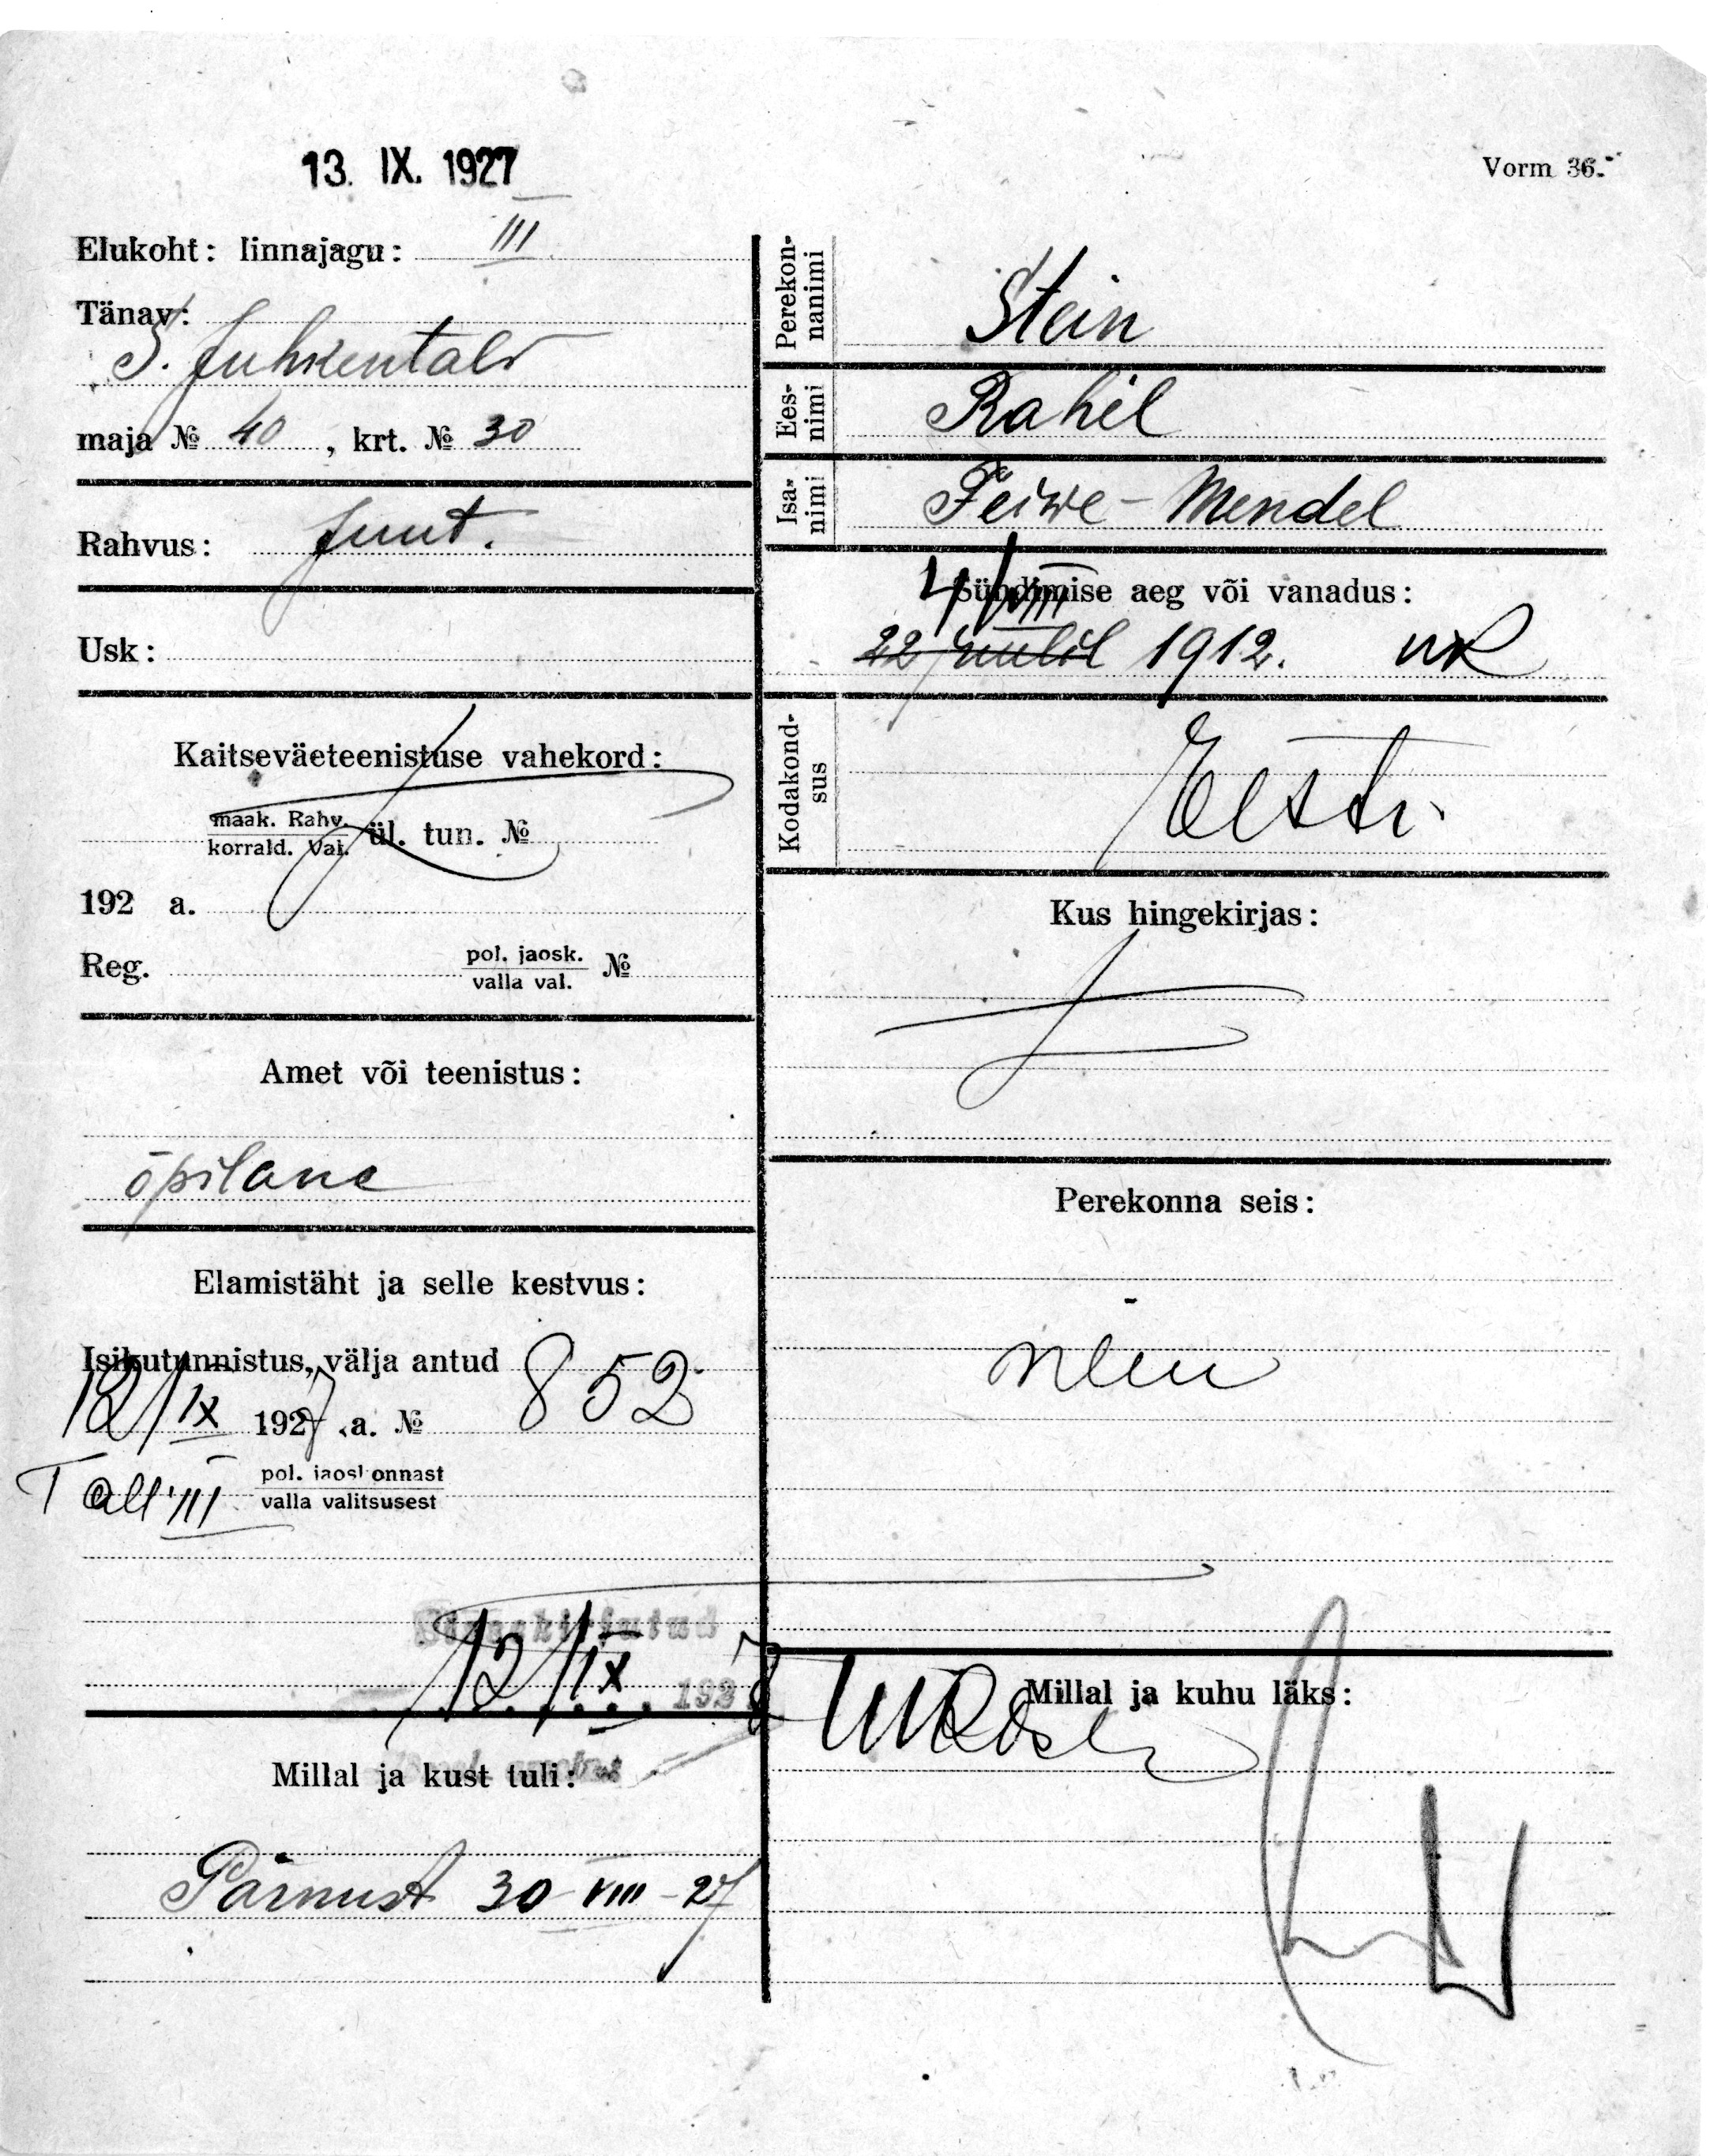 13. IX. 1927
Vorm 36.
Elukoht: linnajagu: III
Tänav:
S. Juhkentali
maja № 40, krt. № 30
Rahvus: Juut.
Usk:
Kaitseväeteenistuse vahekord:
maak. Rahv.
korrald. Val. ül. tun. №
192 a.
Reg. pol. jaosk. №
valla val.
Amet või teenistus:
õpilane
Elamistäht ja selle kestvus:
Isikutunnistus, välja antud 852
12/IX 1927 a. №
Tall. III pol. jaoskonnast
valla valitsusest
Sissekirjutud
12/IX 1927
Millal ja kust tuli:
Pärnust 30-VIII-27
Perekon-
nanimi
Stein
Ees-
nimi
Rahil
Isa-
nimi
Feiwe-Mendel
Sündimise aeg või vanadus:
4/VIII
22 juulil 1912.
Kodakond-
sus
Eesti
Kus hingekirjas:
Perekonna seis:
neiu
Millal ja kuhu läks: